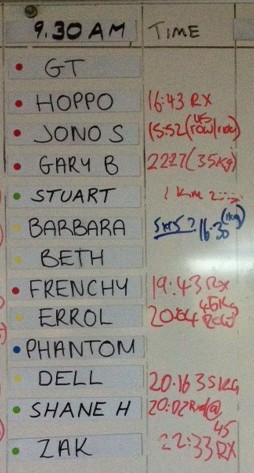 9.30 AM TIME
GT
HOPPO 16:43 RX
JONO S 15:52 (45 row/
GARY B 22:27 (35Kg)
STUART 1
BARBARA 16:30
BETH
FRENCHY 19:43 RX
ERROL 20:04 45Kg
PHANTOM
DELL 20:16 35KG
SHANE H 20:02 @ 45
ZAK 22:33 RX